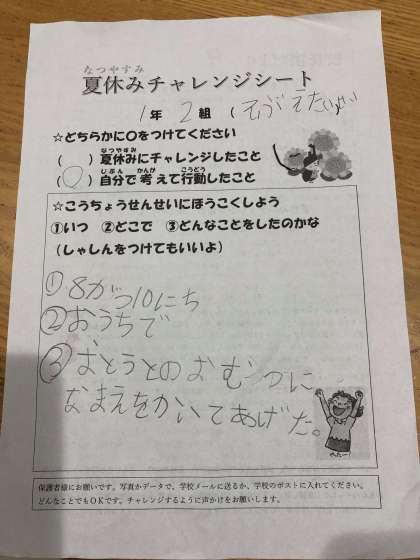 なつやすみ
夏休みチャレンジシート
1年 2組 (
☆どちらかに〇をつけてください
なつやすみ
( ) 夏休みにチャレンジしたこと
じぶん かんが こうどう
(〇) 自分で考えて行動したこと
☆こうちょうせんせいにほうこくしよう
①いつ ②どこで ③どんなことをしたのかな
(しゃしんをつけてもいいよ)
①8がつ10にち
②おうちで
③おとうとのおむつに
なまえをかいてあげた。
やったー!
保護者様にお願いです。写真かデータで、学校メールに送るか、学校のポストに入れてください。
どんなことでもOKです。チャレンジするように声かけをお願いします。